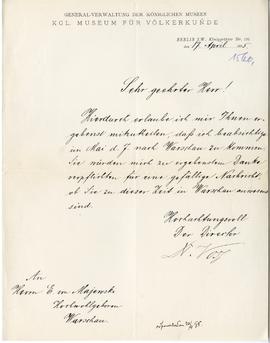 GENERAL-VERWALTUNG DER KÖNIGLICHEN MUSEEN
KGL. MUSEUM FÜR VÖLKERKUNDE
BERLIN S.W., Königgrätzer Str. 120.
den 17. April 1895
Sehr geehrter Herr!
Hierdurch erlaube ich mir Ihnen er-
gebenst mitzutheilen, daß ich beabsichtige
im Mai d. J. nach Warschau zu kommen.
Sie würden mich zu ergebenstem Danke
verpflichten für eine gefällige Nachricht,
ob Sie zu dieser Zeit in Warschau anwesend
sind.
Hochachtungsvoll
Der Director
An
Herrn E. von Majewski
Hochwohlgeboren
Warschau